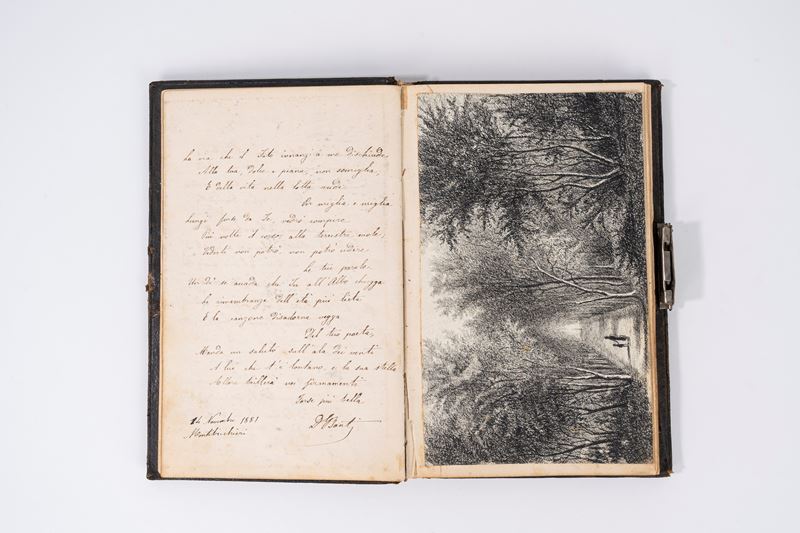 La via che il Fato innanzi a me dischiude
Alla tua, dolce e piana, non somiglia,
E della vita nella lotta rude
Per miglia e miglia
Lungi forse da Te, vedrò compire
Più volte il corso alla terrestre mole,
Vederti non potrò, non potrò udire
Le tue parole.
Un dì se accada che Tu all'Albo chiegga
Le rimembranze dell'età più lieta
E la canzone disadorna vegga
Del tuo poeta,
Manda un saluto sull'ala dei venti
A lui che t'è lontano, e la sua stella
Allor brillerà nei firmamenti
Forse più bella.
14 Novembre 1881